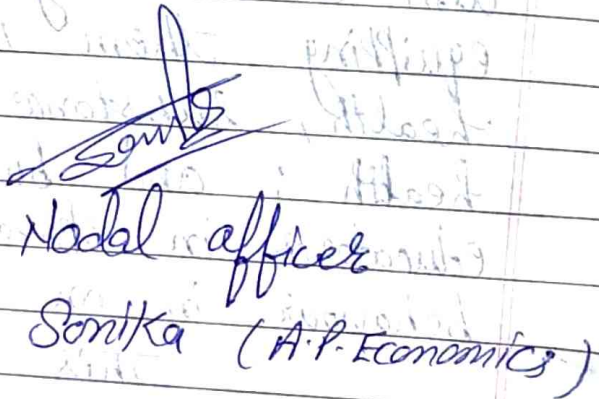 Nodal officer
Sonika (A.P. Economics)